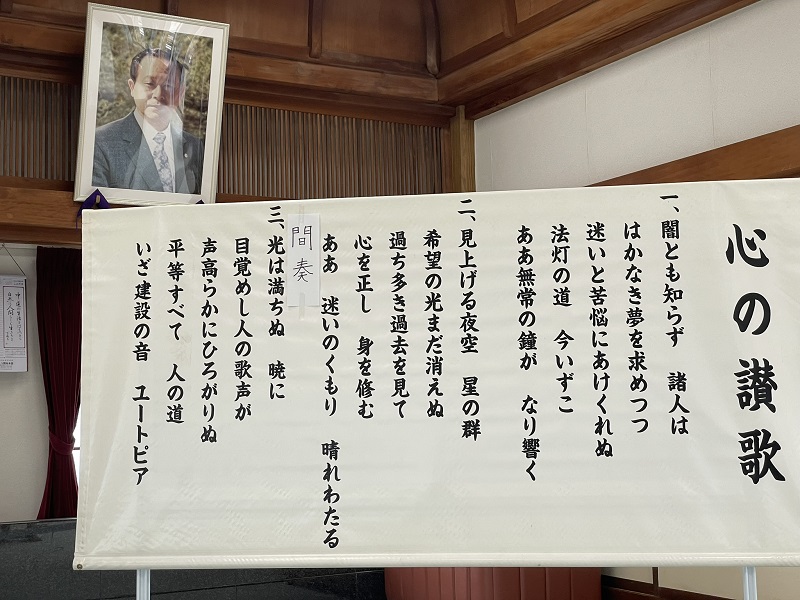 心の讃歌
一、闇とも知らず　諸人は
はかなき夢を求めつつ
迷いと苦悩にあけくれぬ
法灯の道　今いずこ
ああ無常の鐘が　なり響く
二、見上げる夜空　星の群
希望の光まだ消えぬ
過ち多き過去を見て
心を正し　身を修む
ああ　迷いのくもり　晴れわたる
間奏
三、光は満ちぬ　暁に
目覚めし人の歌声が
声高らかにひろがりぬ
平等すべて　人の道
いざ建設の音　ユートピア